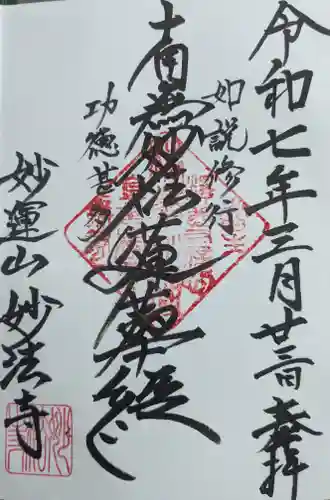 令和七年三月廿三日 奉拝
如説修行
南無妙法蓮華経
功徳甚多
妙運山 妙法寺